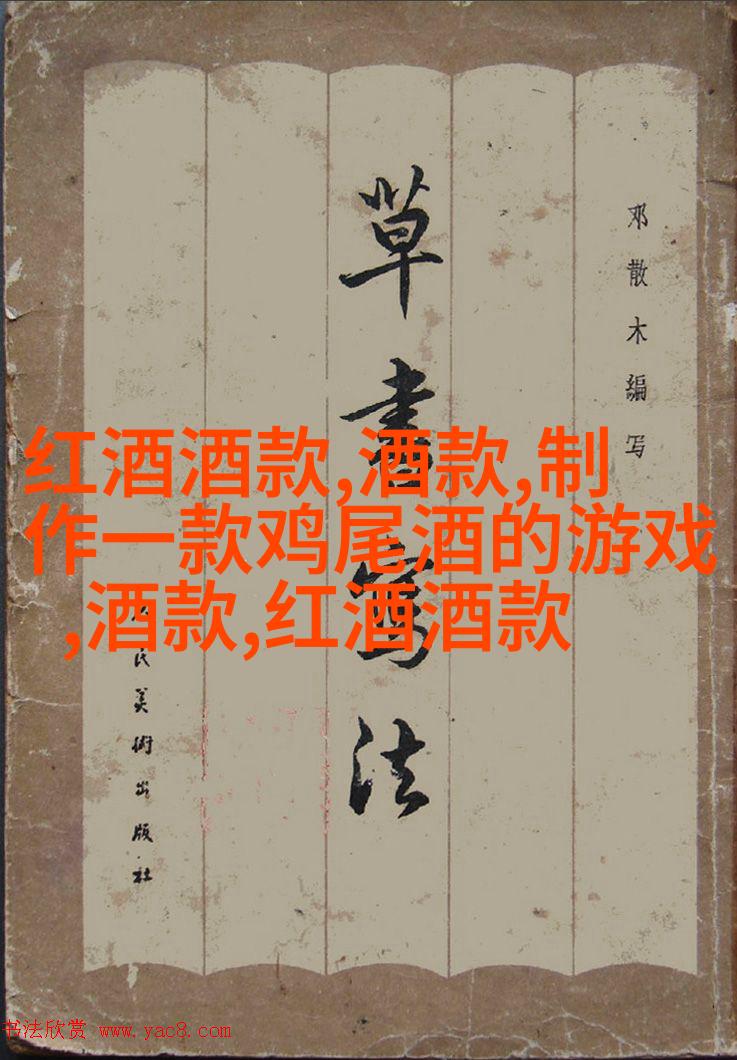 草書寫法
邓散木编写
红酒酒款,酒款,制
作一款鸡尾酒的游戏
,酒款,红酒酒款
民美術出版社
书法欣赏 www.yac8.com